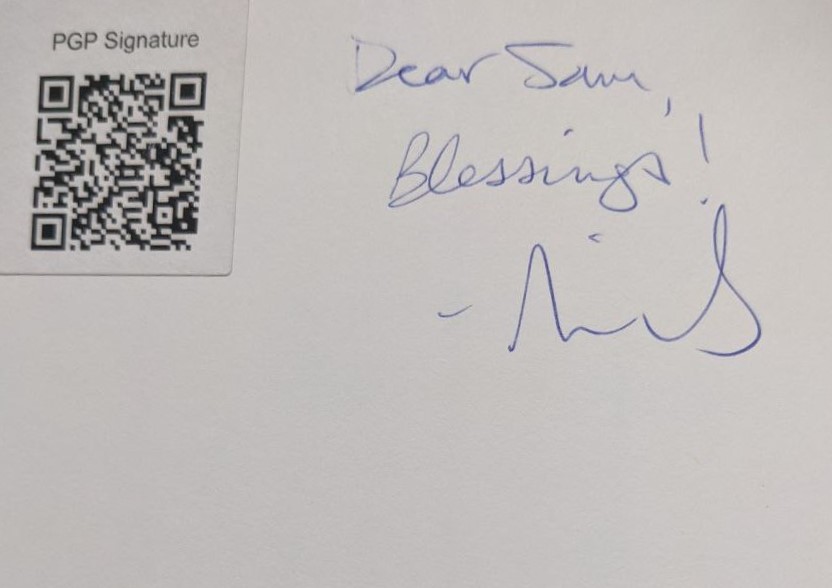 PGP Signature
Dear Sam,
Blessings!